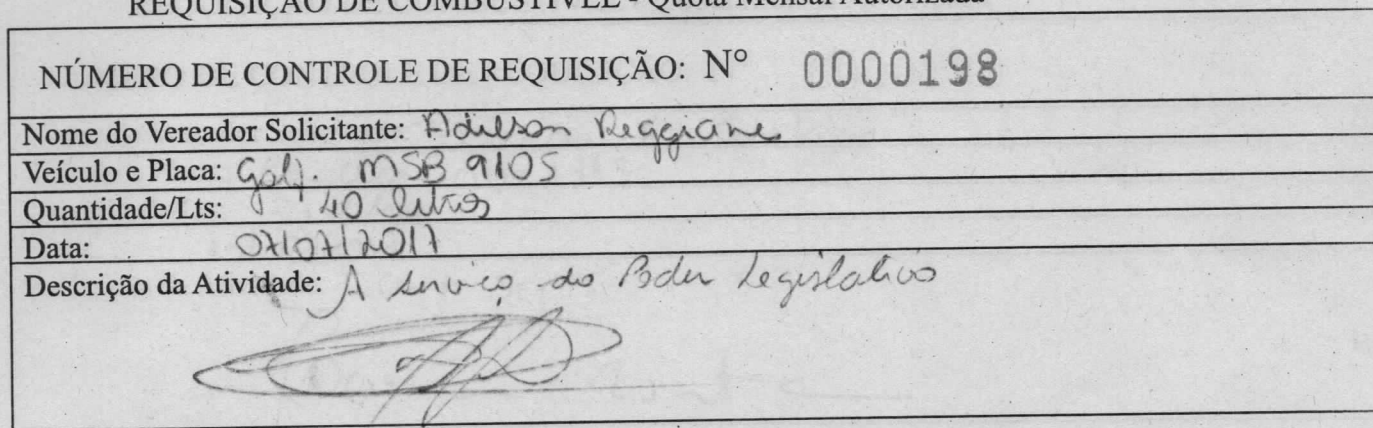 REQUISIÇÃO DE COMBUSTÍVEL - Quota Mensal Autorizada
NÚMERO DE CONTROLE DE REQUISIÇÃO: Nº 0000198
Nome do Vereador Solicitante: Adilson Reggiane
Veículo e Placa: Golf. MSB 9105
Quantidade/Lts: 40 litros
Data: 07/07/2017
Descrição da Atividade: A serviço do Poder Legislativo